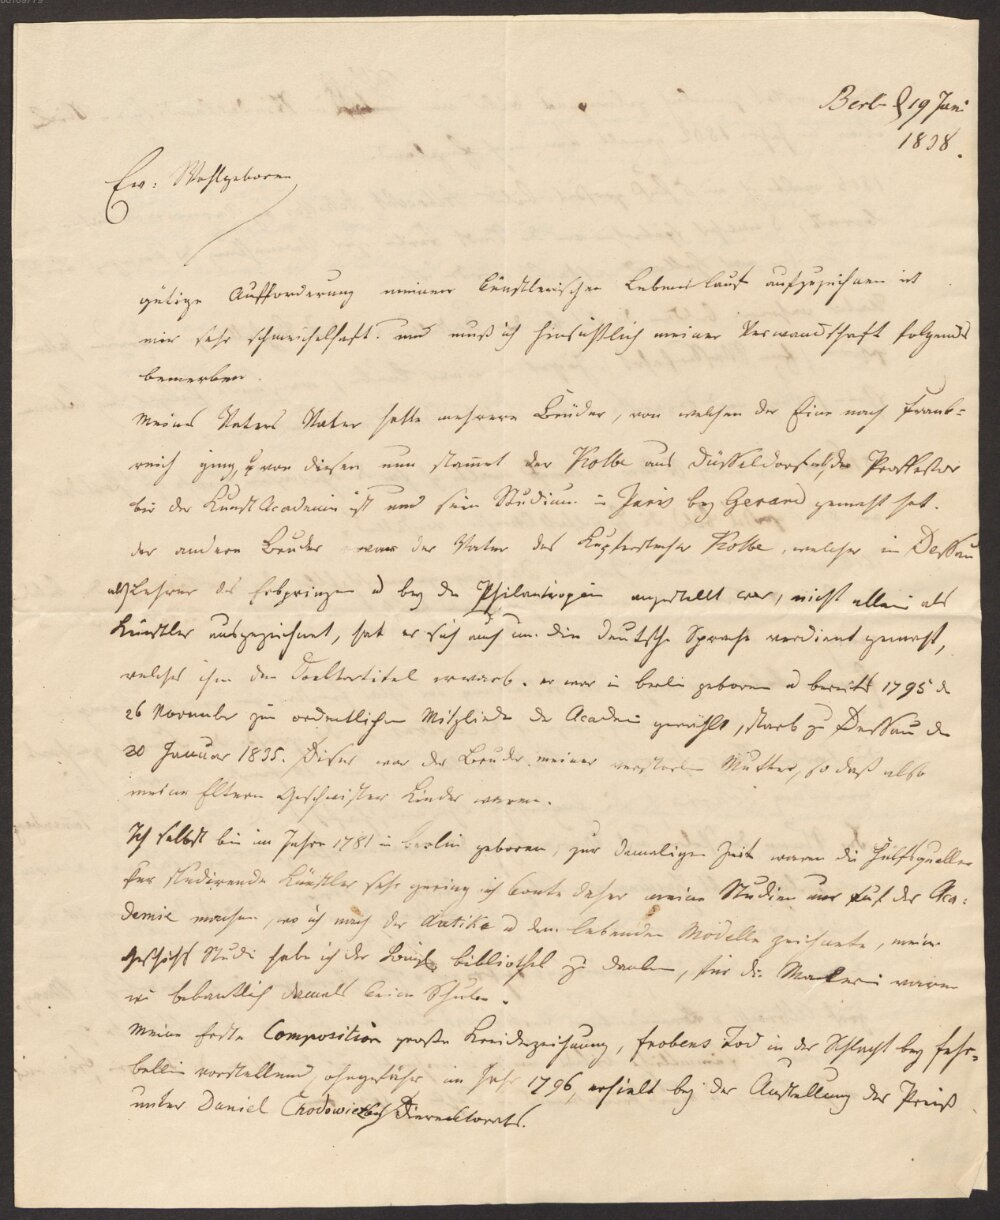 Berl. d 19 Juni
1838.
Ew: Wohlgeboren
gütige Aufforderung meinen künstlerischen Lebenslauf aufzuzeichnen ist
mir sehr schmeichelhaft. und muß ich hinsichtlich meiner Verwandschaft folgendes
bemerken.
Meines Vaters Vater hatte mehrere Brüder, von welchen der Eine nach Frank=
reich ging, von diesen nun stammt der Kolbe aus Düsseldorf der Proffessor
bei der Kunst Academie ist und sein Studium in Paris bey Gerard gemacht hat.
der andere Bruder war der Vater des Kupferstecher Kolbe, welcher in Dessau
als Lehrer des Erbprinzen u bey den Philantropin angestellt war, nicht allein als
Künstler ausgezeichnet, hat er sich auch um die deutsche Sprache verdient gemacht,
welches ihm den Docktortitel erwarb. er war in Berlin geboren u bereits 1795 d
26 November zum ordentlichen Mitgliede der Academi gewählt, starb zu Dessau den
20 Januar 1835. Dieser war der Bruder meiner verstorbn Mutter, so daß also
meine Eltern Geschwister Kinder waren.
Ich selbst bin im Jahre 1781 in Berlin geboren, zur damaligen Zeit waren die Hülfsquellen
für studirende Künstler sehr gering ich konte daher meine Studien nur auf der Aca=
demie machen, wo ich nach der Antike u dem lebenden Modelle zeichnete, mein
Geschichts Studi habe ich der Königl. bibliothek zu danken, für die Malerei waren
wi bekantlich damals keine Schulen.
Meine Erste Composition große Kreidezeichnung, Frobens Tod in der Schlacht bey Fehr=
bellin vorstellend, ohngefähr im Jahr 1796, erhielt bey der Austellung den Preiß
unter Daniel Chodowiecky Directorat.